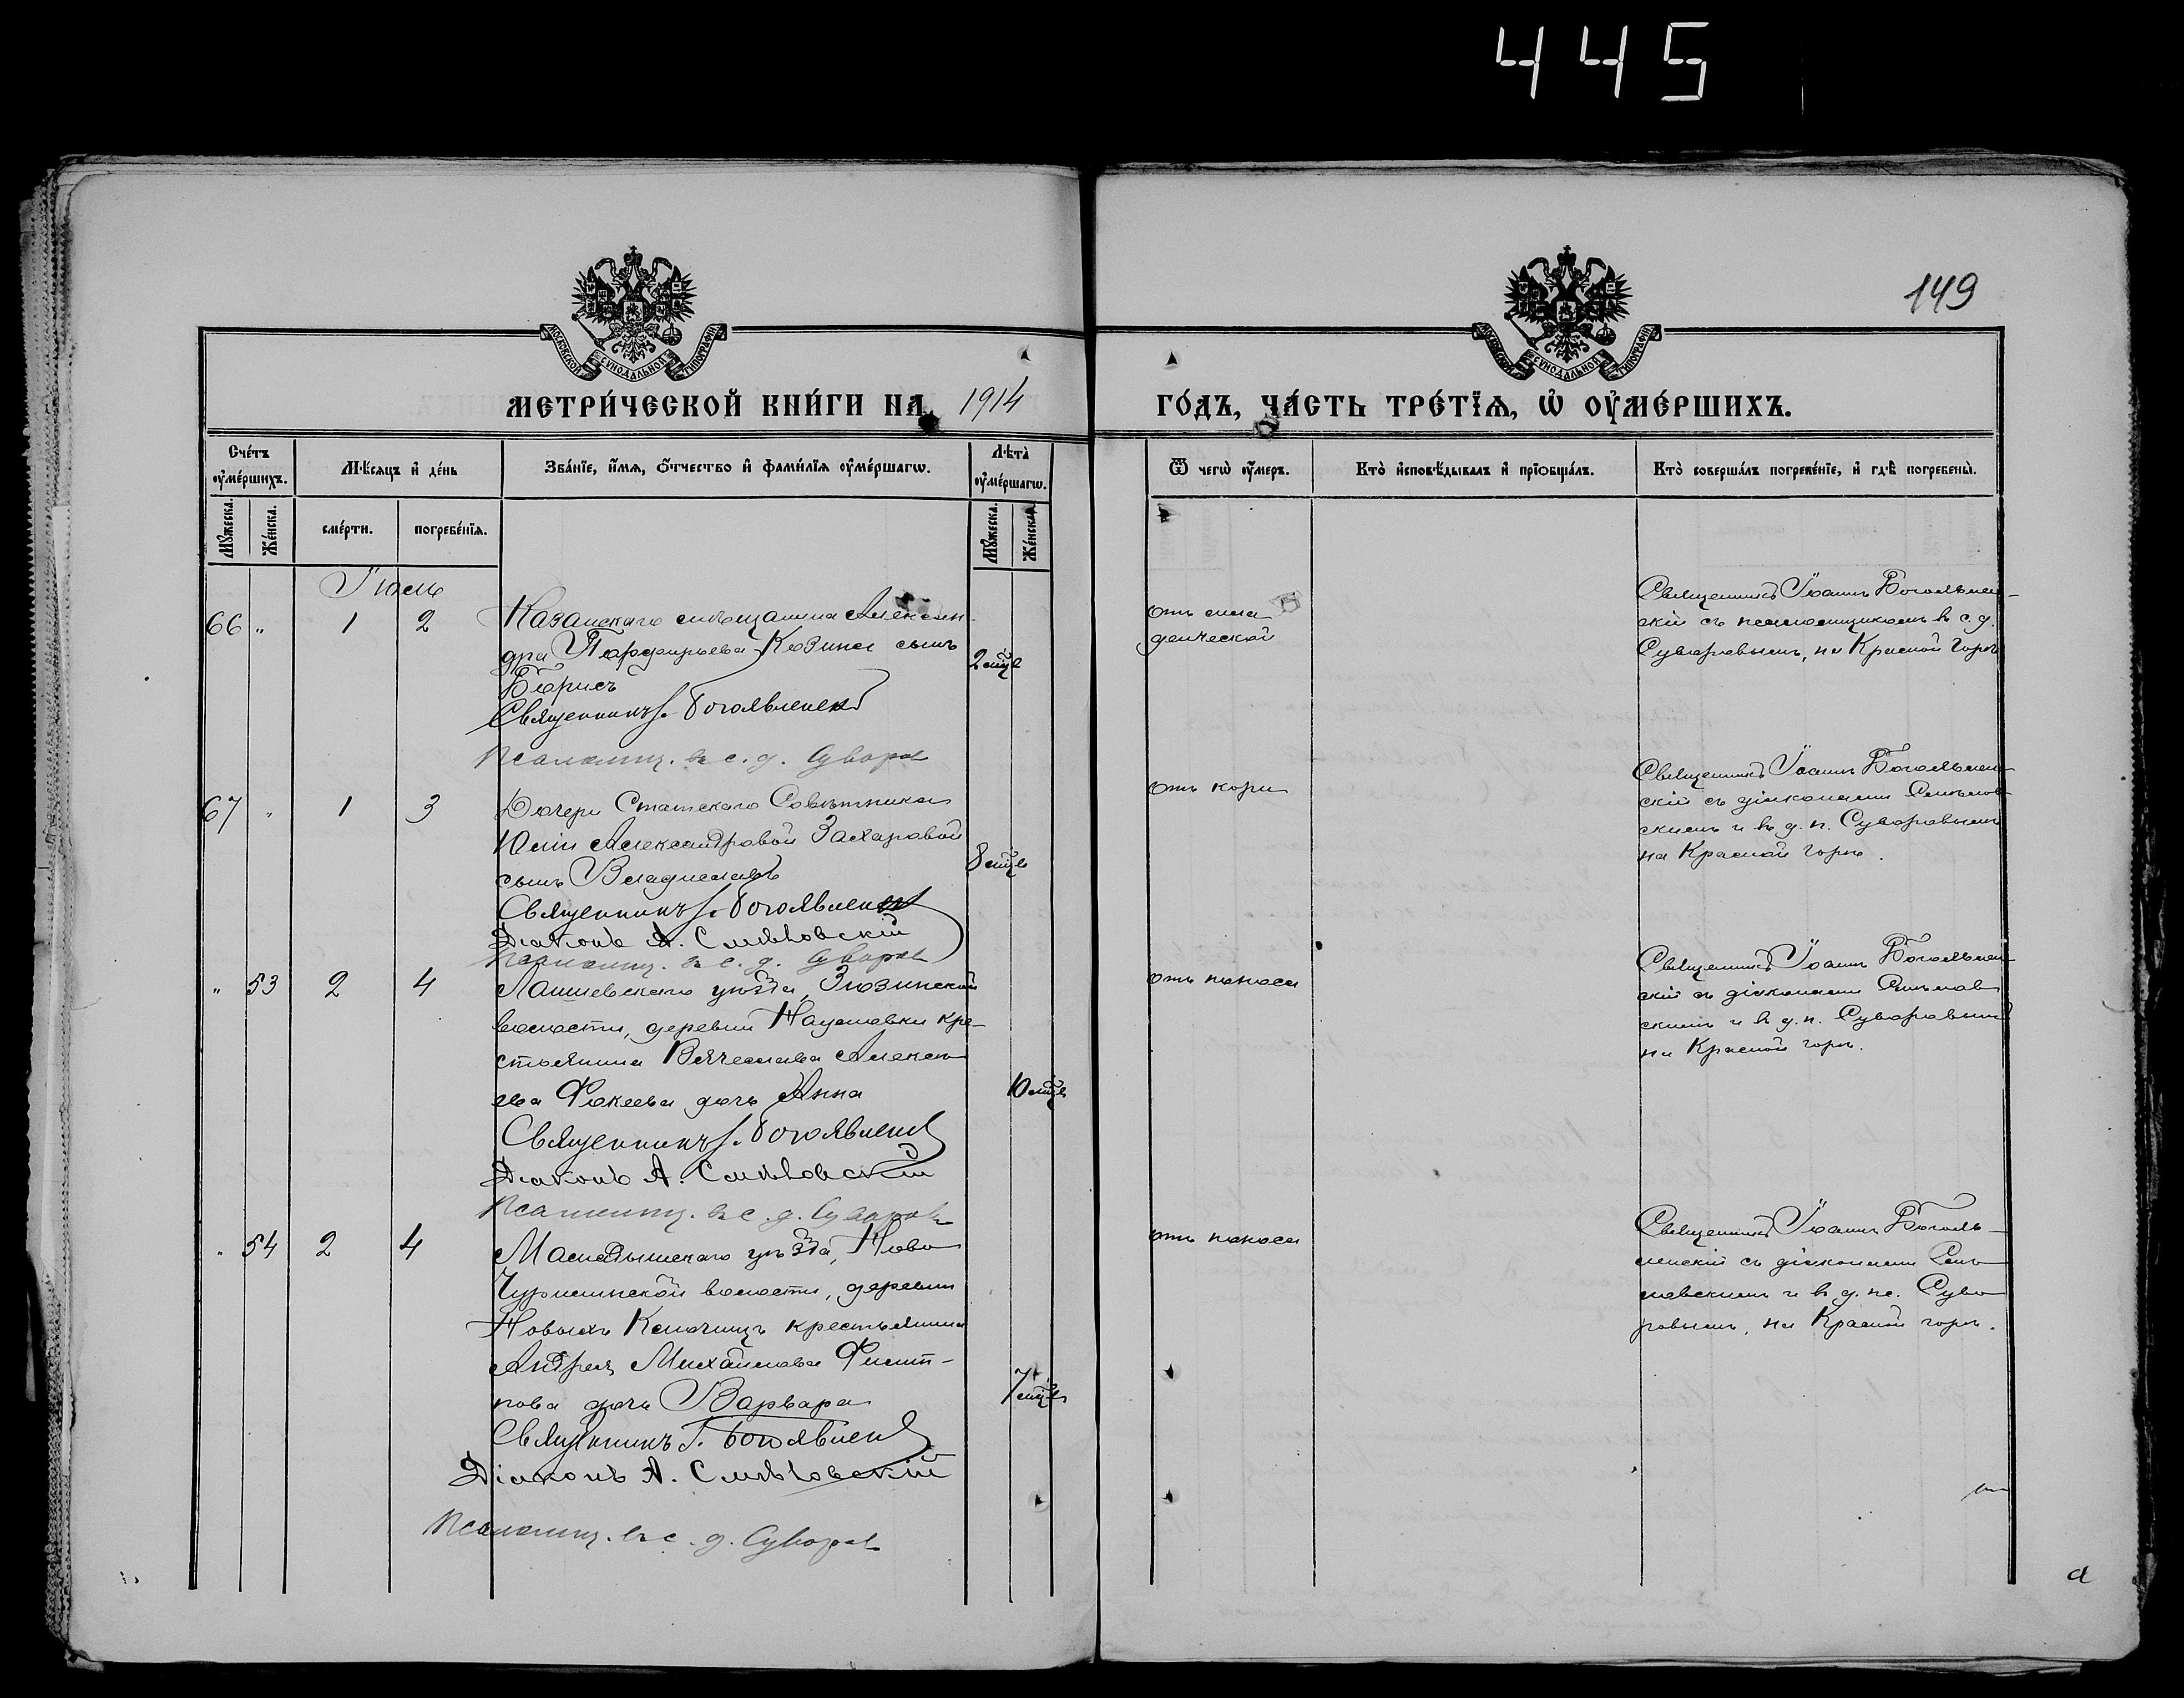 445
149
МОСКОВСКОЙ СѴНОДАЛЬНОЙ ТИПОГРАФІИ
МОСКОВСКОЙ СѴНОДАЛЬНОЙ ТИПОГРАФІИ
МЕТРИ́ЧЕСКОЙ КНИ́ГИ НА 1914 ГО́ДЪ, ЧА́СТЬ ТРЕ́ТІѦ, Ѡ҆ ОУ҆МЕ́РШИХЪ.
Сче́тъ оу҆ме́ршихъ.
Мꙋ́жеска.
Же́нска.
Мѣ́сяцъ и҆ де́нь
сме́рти.
погребе́нїѧ.
Зва́нїе, и҆́мѧ, ѻ҆́тчество и҆ фами́лїѧ оу҆ме́ршагѡ.
Лѣ́та оу҆ме́ршагѡ.
Мꙋ́жеска.
Же́нска.
Ѿ чегѡ̀ оу҆́меръ.
Кто̀ и҆сповѣ́дывалъ и҆ прїѡбща́лъ.
Кто̀ соверша́лъ погребе́нїе, и҆ гдѣ̀ погребены̀.
Іюль
66 " 1 2
Казанскаго мѣщанина Алексан-
дра Порфирьева Козина сынъ
Борисъ
2 мѣс
Священникъ І. Богоявленск
Псаломщ. въ с. д. Суворов
отъ мла
денческой
Священникъ Іоаннъ Богоявлен-
скій съ псаломщикомъ въ с. д.
Суворовымъ, на Красной Горкѣ
67 " 1 3
Дочери Статскаго Совѣтника
Юліи Александровой Захаровой
сынъ Владиславъ
8 мѣс
Священникъ І. Богоявленск
Діаконъ А. Смѣловскій
Псаломщ. въ с. д. Суворов
отъ кори
Священникъ Іоаннъ Богоявлен-
скій съ діакономъ Смѣлов-
скимъ и въ д. п. Суворовымъ
на Красной горкѣ.
" 53 2 4
Лаишевскаго уѣзда, Зюзинской
волости, деревни Наумовки кре-
стьянина Вячеслава Алексѣ
ева Фокеева дочь Анна
10 мѣс
Священникъ І. Богоявленск
Діаконъ А. Смѣловскій
Псаломщ. въ с. д. Суворов
отъ поноса
Священникъ Іоаннъ Богоявлен-
скій съ діакономъ Смѣлов
скимъ и въ д. п. Суворовымъ
на Красной горкѣ.
" 54 2 4
Мамадышскаго уѣзда, Ново
волости, деревни
Новыхъ крестьянина
Андрея Михайлова Филип-
пова дочь Варвара
7 мѣс
Священникъ І. Богоявленск
Діаконъ А. Смѣловскій
Псаломщ. въ с. д. Суворов
отъ поноса
Священникъ Іоаннъ Богояв-
ленскій съ діакономъ Смѣ-
ловскимъ и въ д. пс. Суво
ровымъ, на Красной горкѣ.